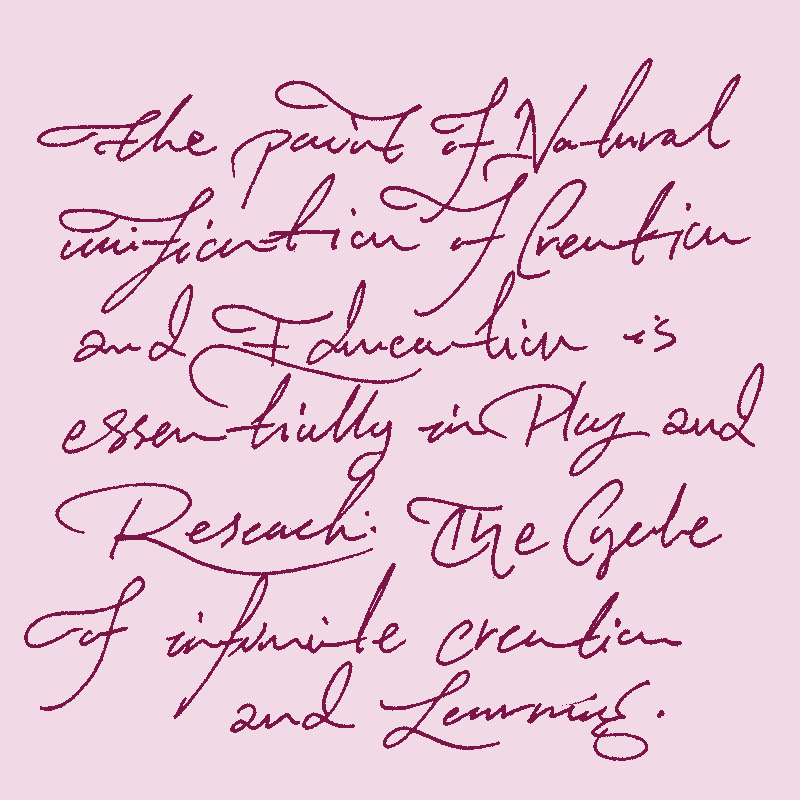 the point of Natural
unification of Creation
and Education is
essentially in Play and
Reseach: The Cycle
of infinite creation
and Learning.